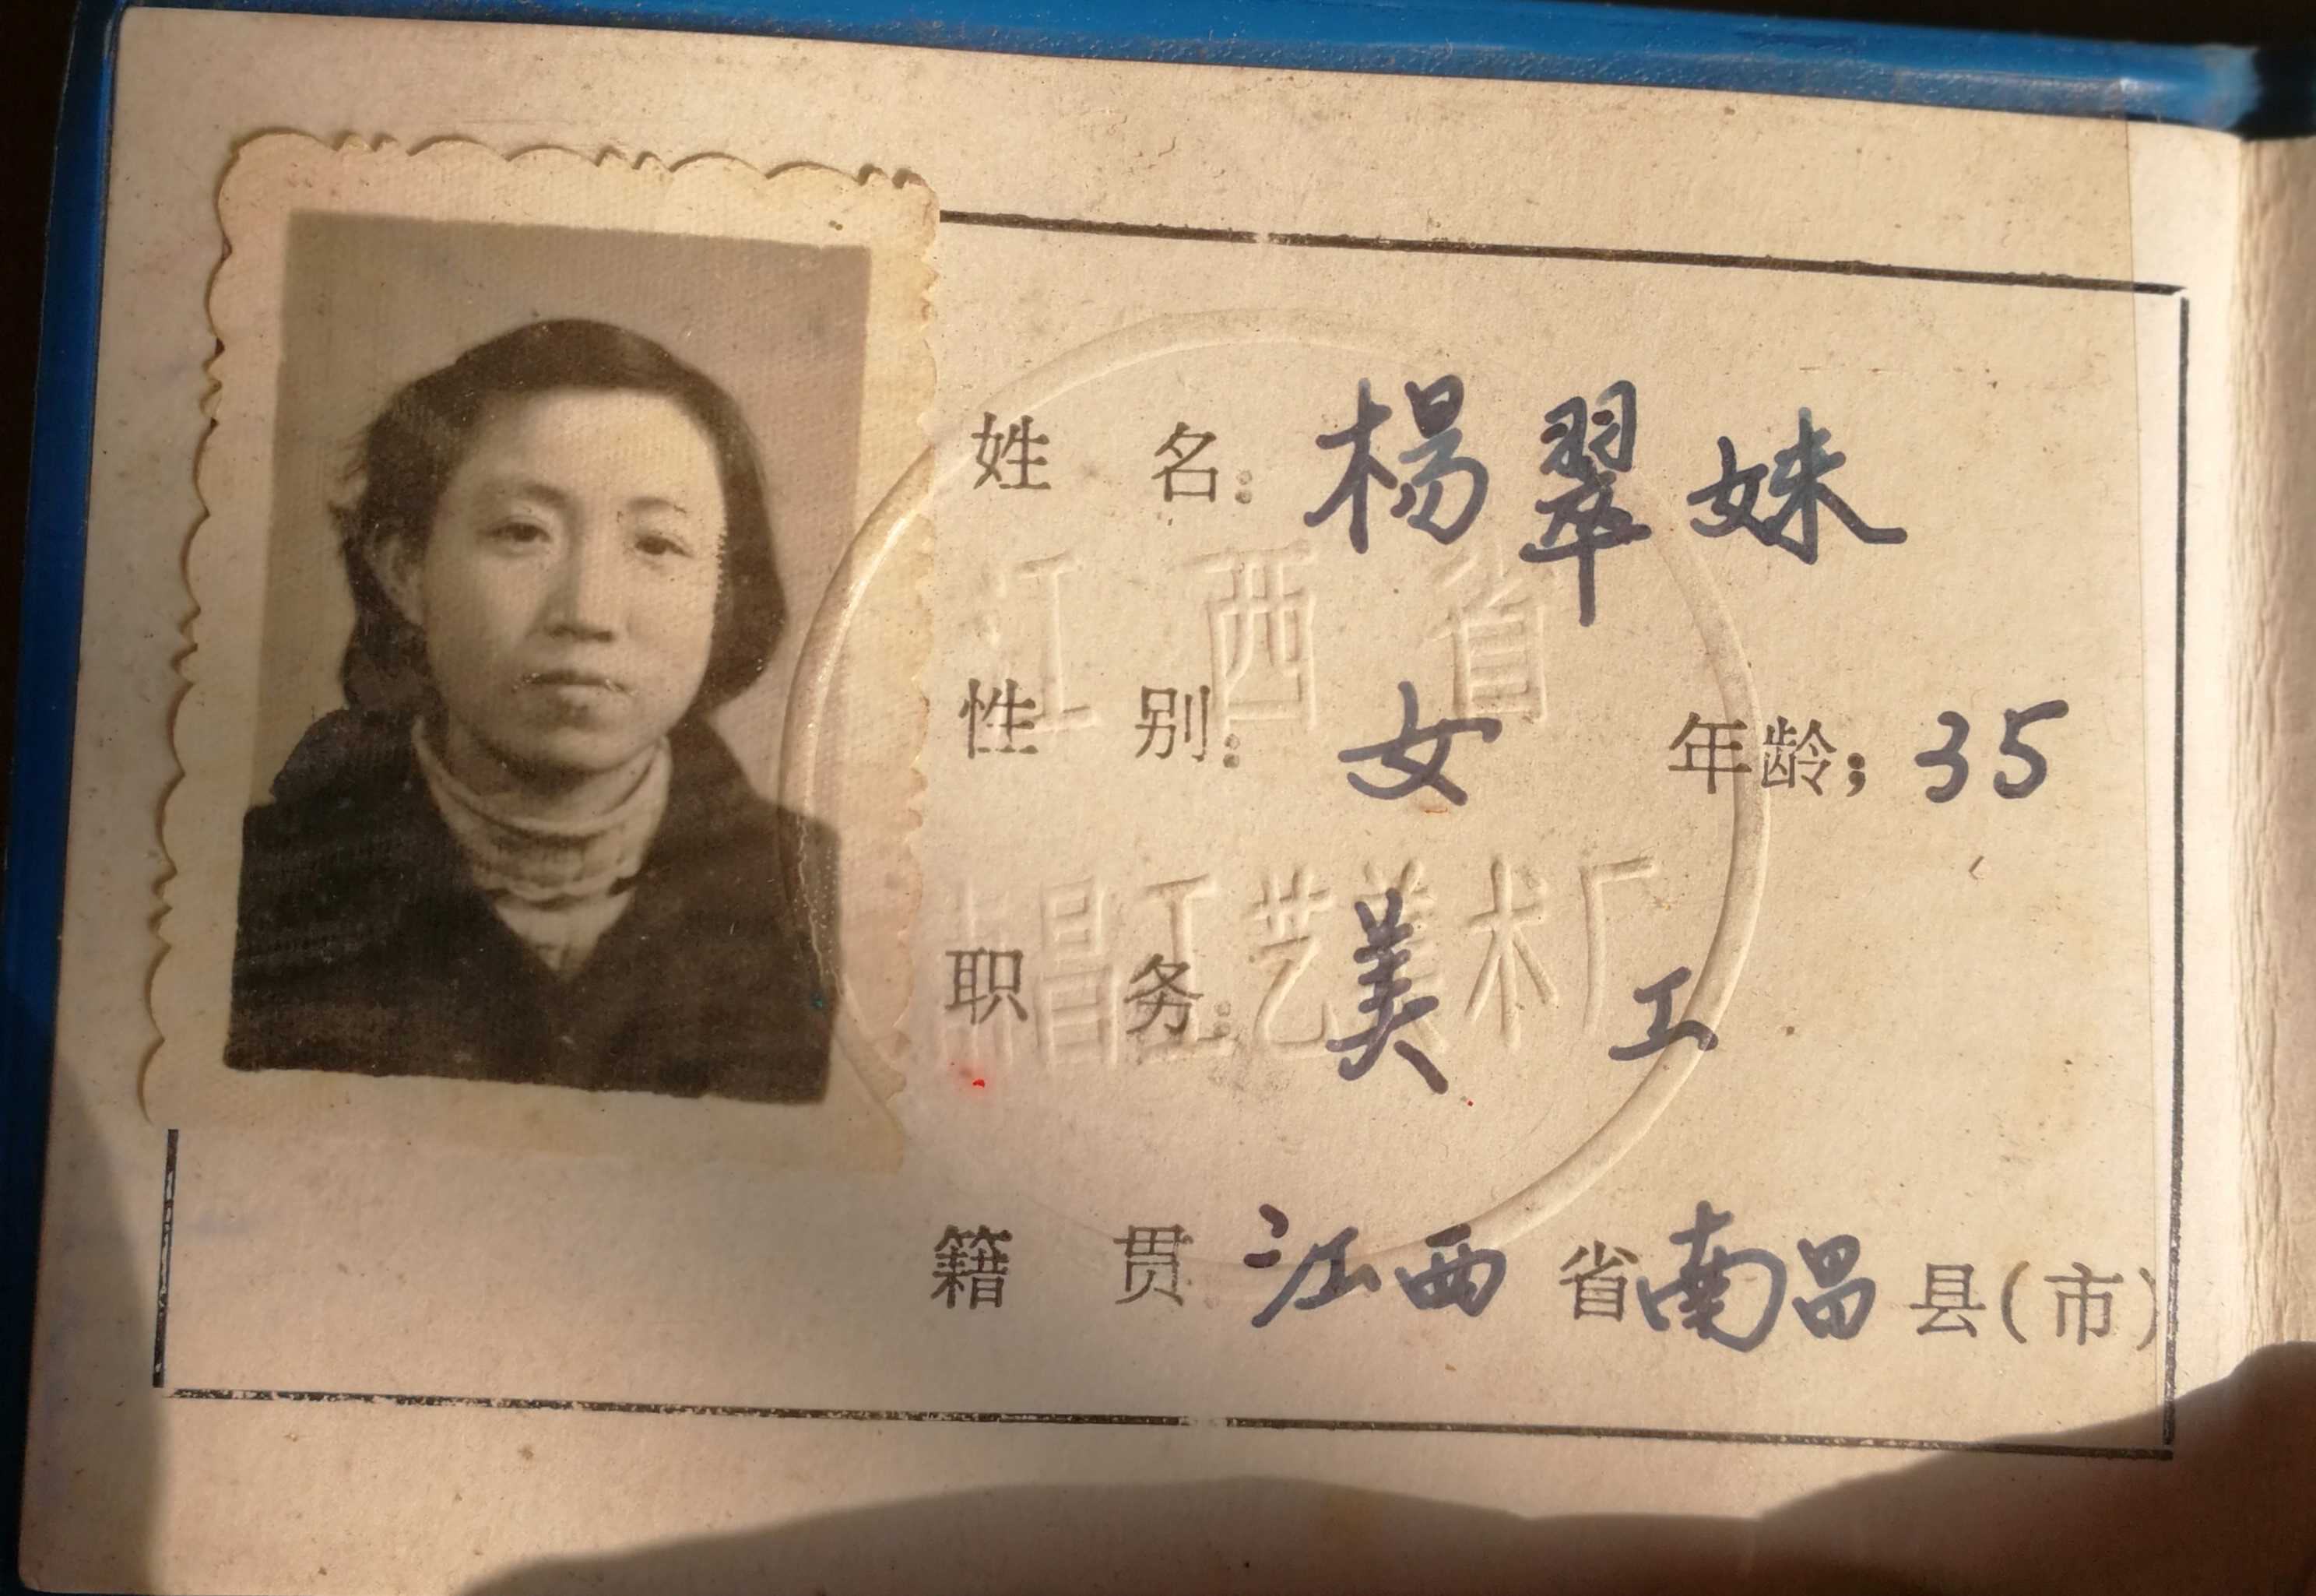 姓 名: 楊翠妹
江西省
性 别: 女 年龄: 35
南昌工艺美术厂
职 务: 美工
籍 贯 江西省南昌县(市)